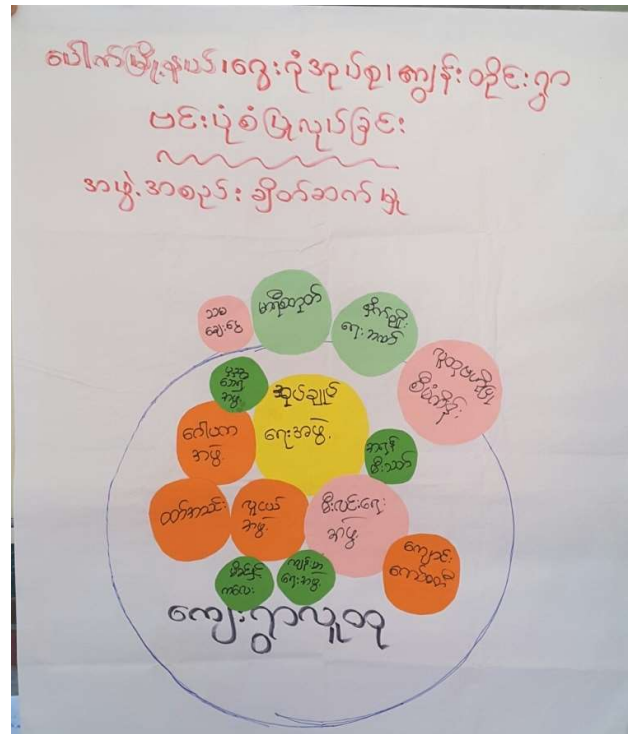 ပေါက်မြို့နယ်၊ ရွေးဂုံအုပ်စု၊ ကျွန်းတိုင်းရွာ
ဗင်းပုံစံပြုလုပ်ခြင်း
အဖွဲ့အစည်း ချိတ်ဆက်မှု
သမ
ချေးငွေ
မာရီစတုတ်
စိုက်ပျိုး
ရေး အထက်
လူထုဗဟိုပြု
စီမံကိန်း
အဖွဲ့
အုပ်ချုပ်
ရေးအဖွဲ့
ဂေါပက
အဖွဲ့
အရန်
မီးသတ်
ထောက်အသင်း
လူငယ်
အဖွဲ့
မီးလင်းရေး
အဖွဲ့
ကျောင်း
ကော်မတီ
မိခင်နှင့်
ကလေး
ကျန်းမာ
ရေးအဖွဲ့
ကျေးရွာလူထု